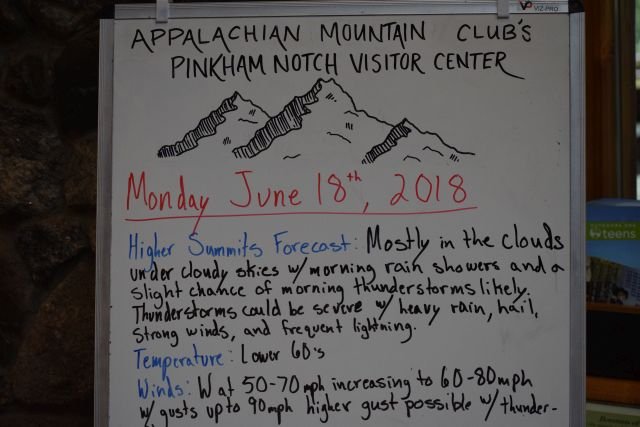 VIZ-PRO
APPALACHIAN MOUNTAIN CLUB'S
PINKHAM NOTCH VISITOR CENTER
Monday June 18th, 2018
Higher Summits Forecast: Mostly in the clouds
under cloudy skies w/ morning rain showers and a
slight chance of morning thunderstorms likely.
Thunderstorms could be severe w/ heavy rain, hail,
strong winds, and frequent lightning.
Temperature: Lower 60's
Winds: W at 50-70mph increasing to 60-80mph
w/ gusts up to 90mph higher gust possible w/ thunder-
teens